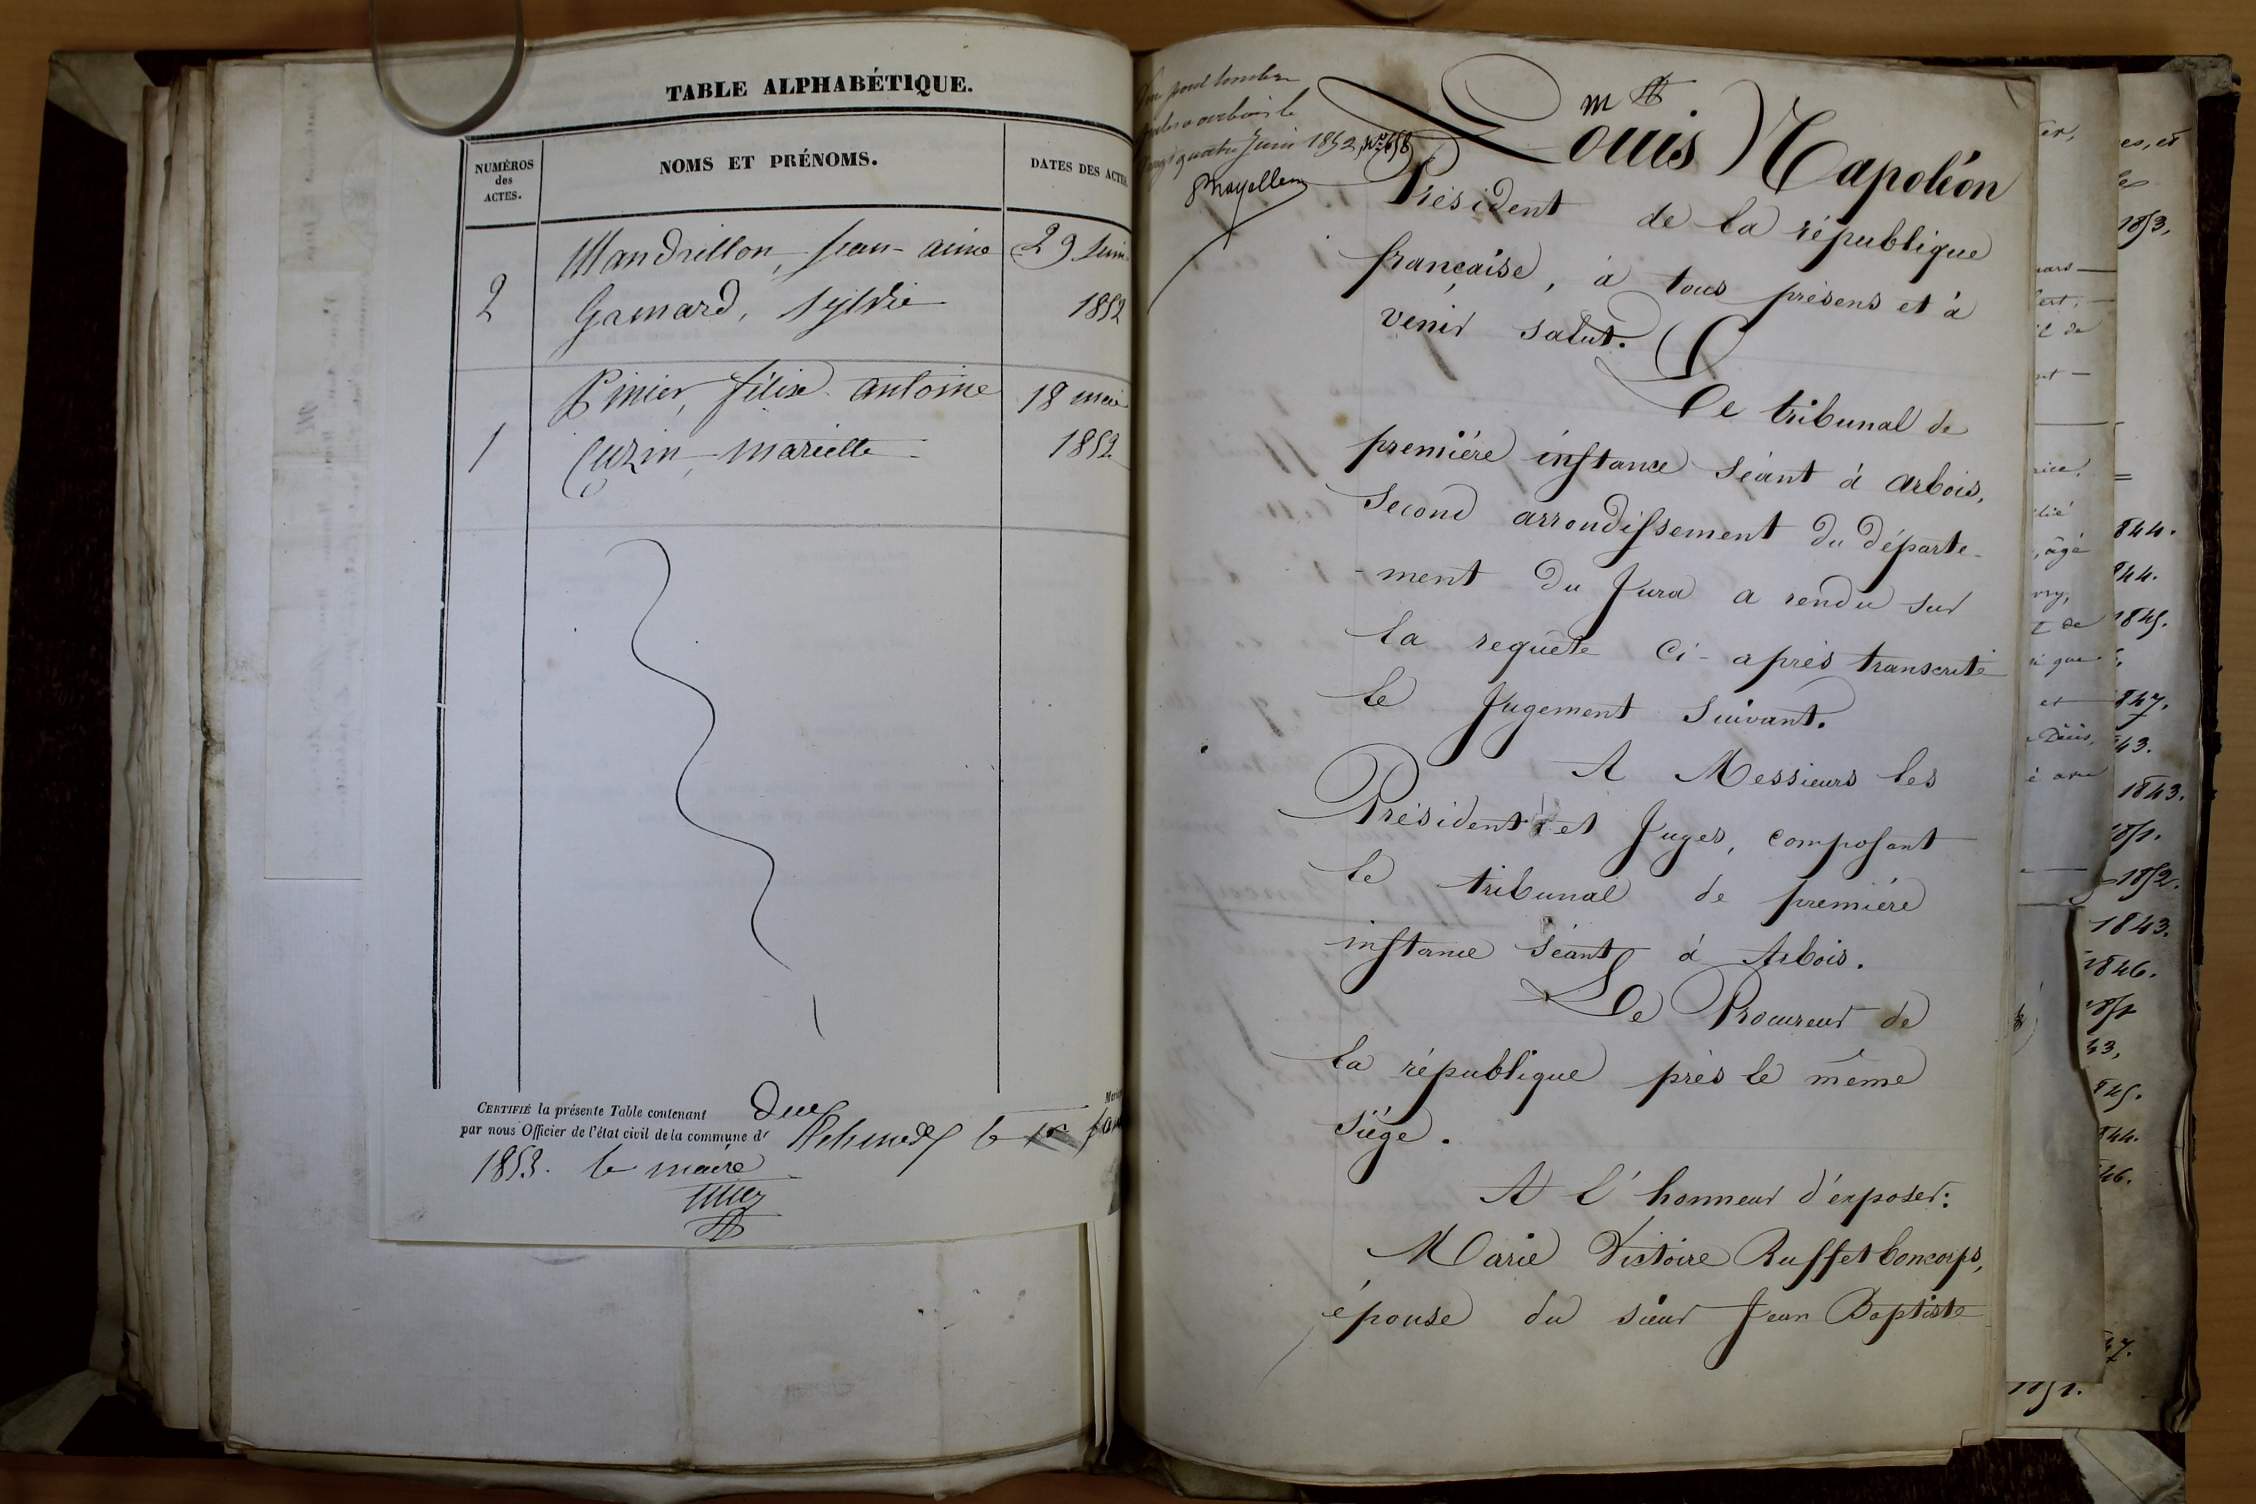 TABLE ALPHABÉTIQUE.
NUMÉROS
des
ACTES.
NOMS ET PRÉNOMS.
DATES DES ACTES
Mandrillon, jean-aimé
29 Juin
2
Gamard, Sylvie
1852
Pinier, félix antoine
18 mai
1
Cuzin, mariette
1852
CERTIFIÉ la présente Table contenant deux
par nous Officier de l'état civil de la commune de
1853. le maire
timbre
arbois le
quatre Juin 1852, N° 658
Louis Napoléon
Président de la république
française, à tous présens et à
venir salut.
Le tribunal de
première instance séant à arbois,
second arrondissement du départe-
-ment du Jura a rendu sur
la requête ci-après transcrite
le Jugement suivant.
A Messieurs les
Président et Juges, composant
le tribunal de première
instance séant à Arbois.
Le Procureur de
la république près le même
siége.
A l'honneur d'exposer:
Marie Victoire Buffet boncorps,
épouse du sieur Jean Baptiste
1853,
1844.
1845.
1843.
1852.
1843.
1846.